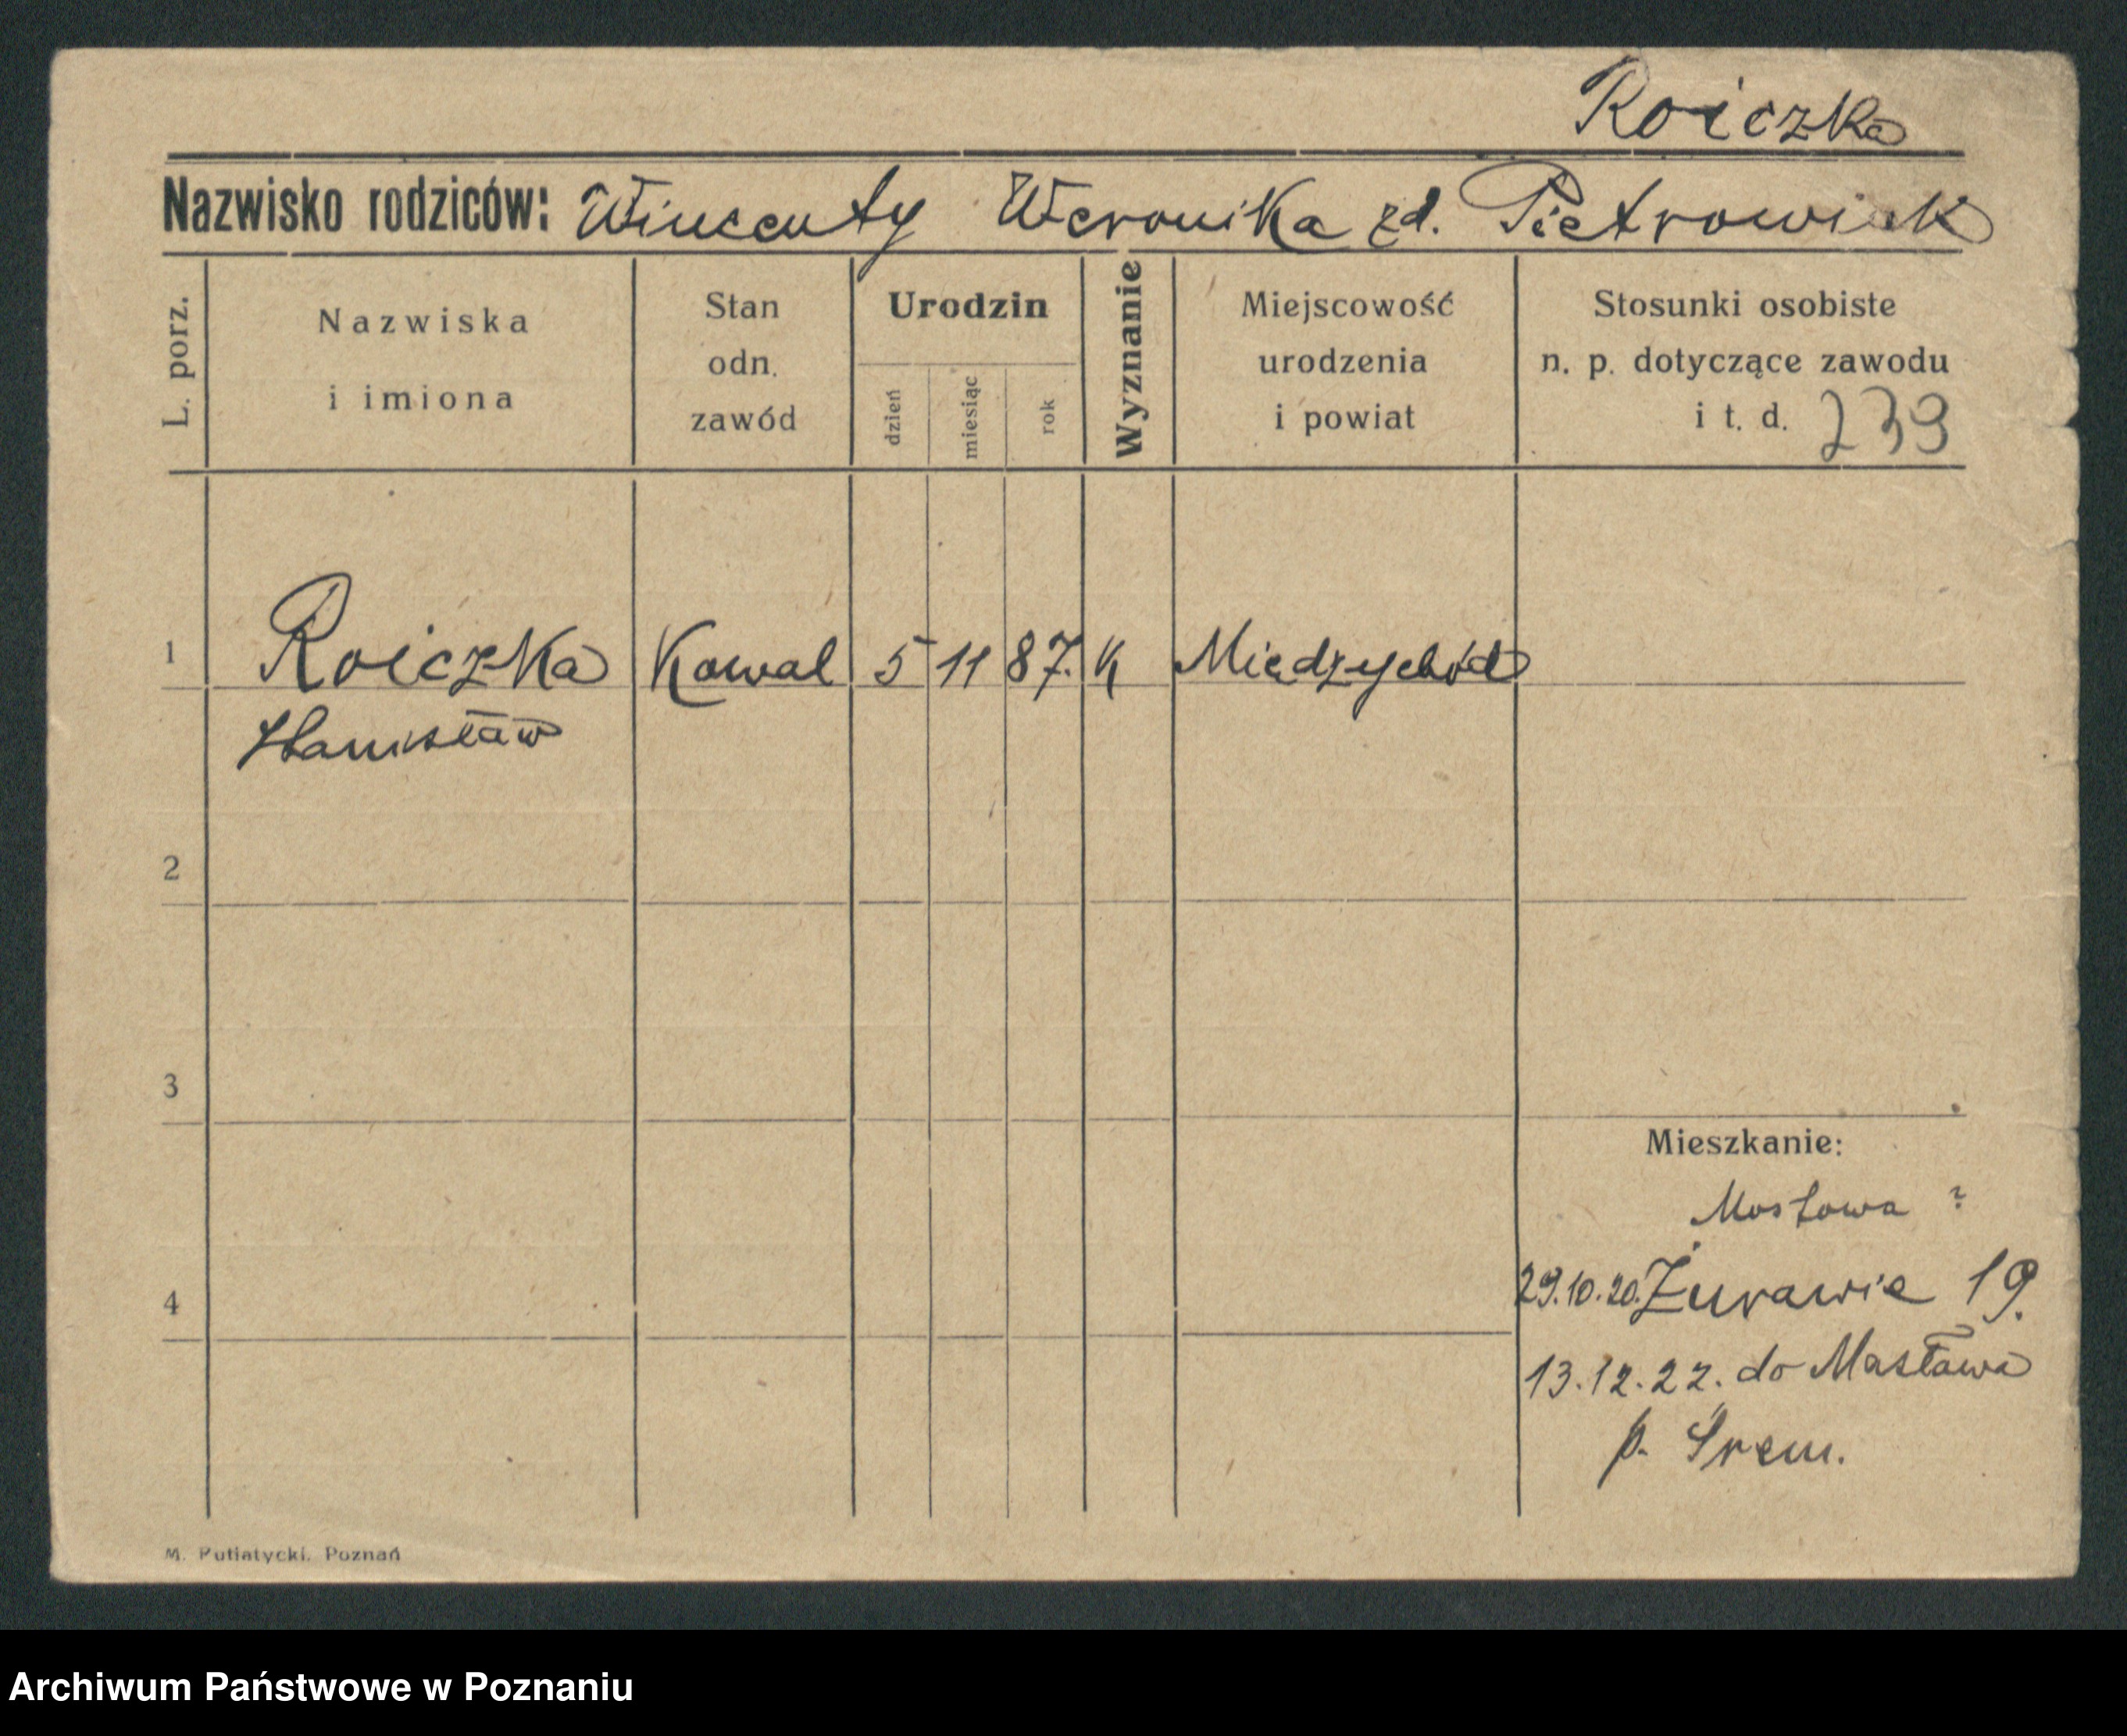 Roiczka
Nazwisko rodziców: Wincenty Weronika zd. Pietrowiak
L. porz.
Nazwiska
i imiona
Stan
odn.
zawód
Urodzin
dzień
miesiąc
rok
Wyznanie
Miejscowość
urodzenia
i powiat
Stosunki osobiste
n. p. dotyczące zawodu
i t. d. 239
1 Roiczka Kowal 5 11 87. K Miedzychód
Stanisław
2
3
Mieszkanie:
Mostowa ?
4 29.10.20. Żurawie 19.
13.12.22. do Masława
p. Śrem.
M. Putiatycki. Poznań
Archiwum Państwowe w Poznaniu